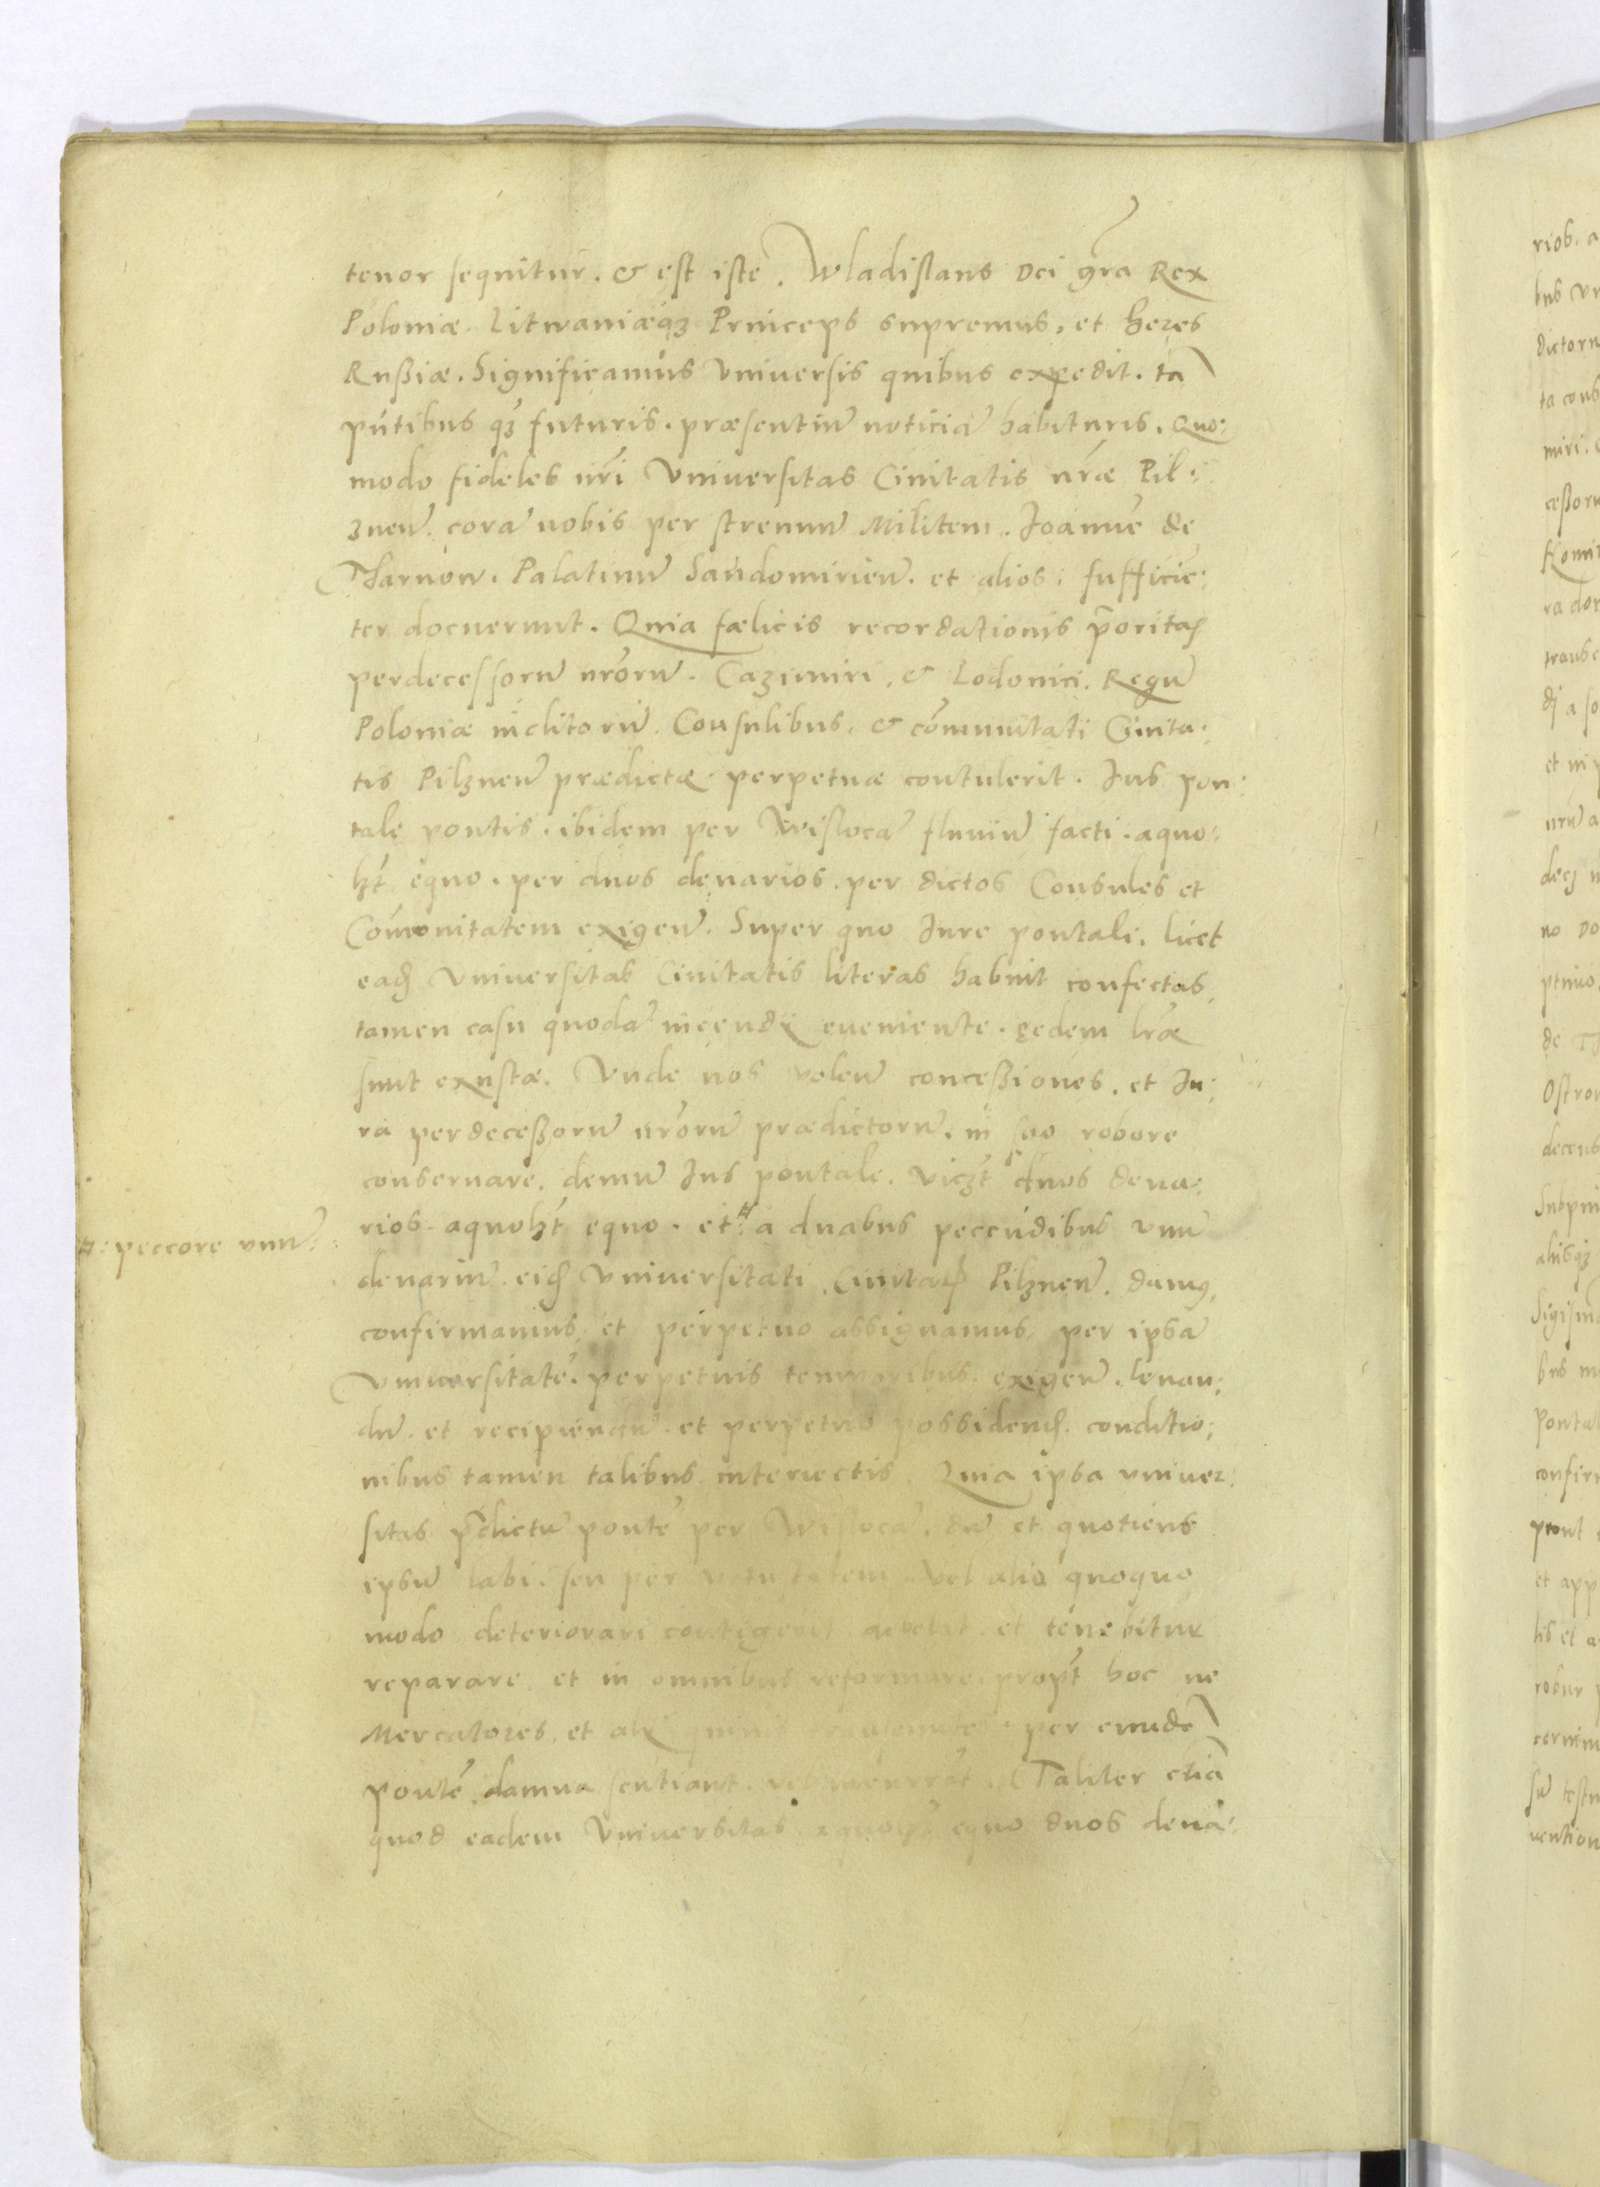 tenor sequitur. & est iste. Wladislaus Dei gr̃a Rex
Poloniæ. Litwaniæqʒ Princeps supremus, et heres
Rußiæ. Significamus Vniuersis quibus expedit. tã
pñtibus qʒ futuris. præsentiũ noticiã habituris. Quo:
modo fideles nr̃i Vniuersitas Ciuitatis nr̃æ Pil:
znen̄. corã nobis per strenuũ Militem. Joannẽ de
Tharnow. Palatinũ Sandomirien̄. et alios. sufficiẽ:
ter docuerunt. Quia fælicis recordationis
perdecessorũ nr̃orũ. Cazimiri, & Lodouici. Regũ
Poloniæ inclitorũ. Consulibus, & cõmunitati Ciuita:
tis Pilznen̄ prædictæ perpetuæ contulerit. Jus pon:
tale pontis. ibidem per Wislocã fluuiũ facti. aquo:
lʒt equo. per duos denarios. per dictos Consules et
Cõmonitatem exigen̄. Super quo Jure pontali. licet
eadꝫ Vniuersitas Ciuitatis literas habuit confectas,
tamen casu quodã incendij eueniente. eędem lr̃æ
sunt exustæ. Vnde nos volen̄ conceßiones, et Ju:
ra perdeceßorũ nr̃orũ prædictorũ, in suo robore
conseruare, demũ Jus pontale. vicʒt duos dena:
rios. aquolʒt equo. et # a duabus peccudibus vnũ
#: peccore vnũ:
denariũ. eidꝫ Vniuersitati. Pilznen̄. damus,
confirmamus, et perpetuo assignamus, per ipsã
Vniuersitatẽ. perpetuis temporibus exigen̄. leuan:
dũ. et recipiendũ. et perpetuo possidendꝫ. conditio:
nibus tamen talibus interiectis. Quia ipsa vniuer:
sitas p̃dictũ pontẽ per Wislocã. dũ et quotiens
ipsũ labi. seu per vetustatem vel alio quoquo
modo deteriorari contigerit et tenebitur
reparare et in omnibus reformare. propt̃ hoc ne
Mercatores, et alij per eundẽ
pontẽ damna sentiant. Taliter etiã
quod eadem Vniuersitas. equo duos dena: